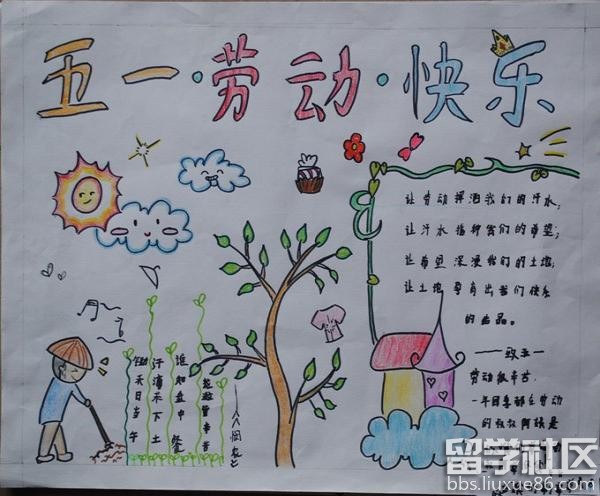 五一·劳动·快乐
让劳动挥洒我们的汗水；
让汗水播种我们的希望；
让希望深浸我们的土地；
让土地孕育出我们快乐
的
——致五一
劳动最辛苦，
一年四季都在劳动
的叔叔阿姨是
锄禾日当午
汗滴禾下土
谁知盘中餐
粒粒皆辛苦
《悯农》
留学社区
bbs.liuxue86.com